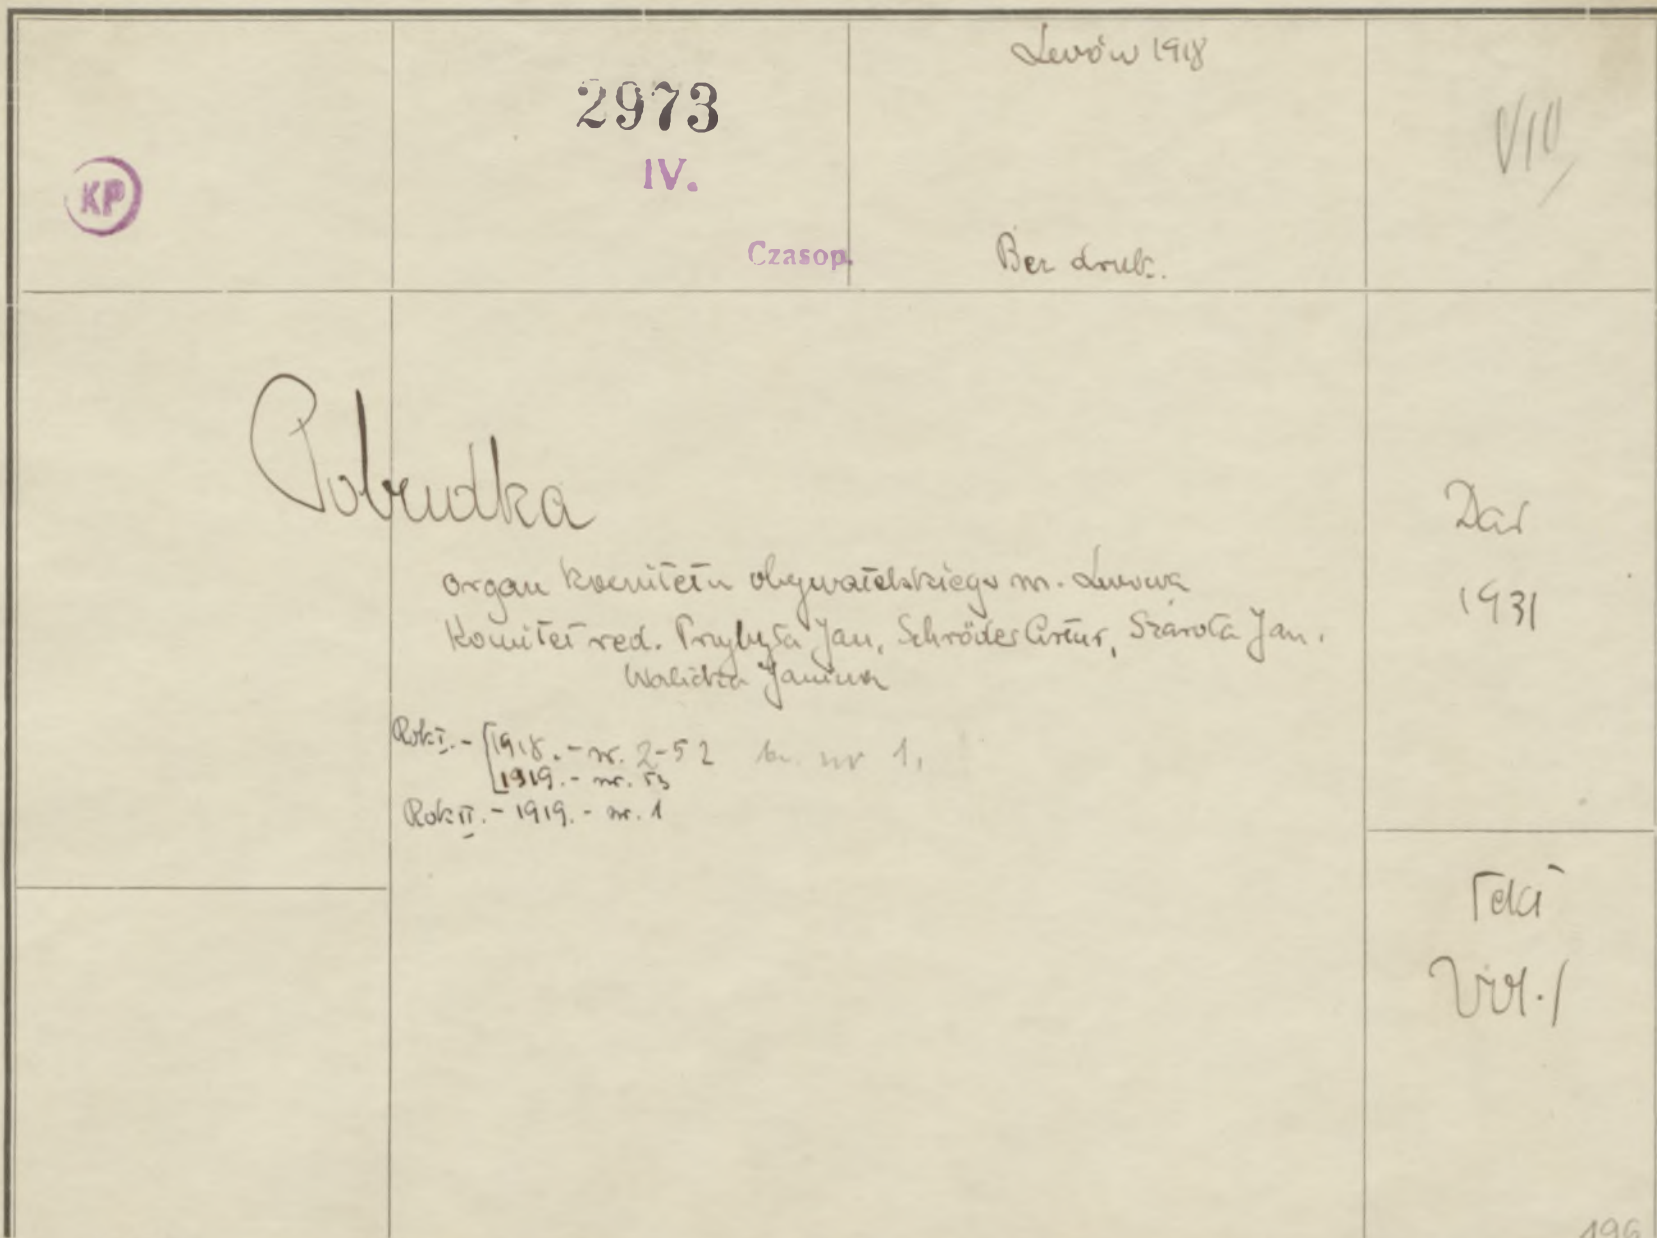 Lwów 1918
2973
IV.
VIII
KP
Czasop.
Bez druk.
Pobudka
organ komitetu obywatelskiego m. Lwowa
Komitet red. Przybyła Jan, Schröder Artur, Szarota Jan.
Walicka Janina
Rok I. - 1918. - nr. 2-52 br. nr 1,
1919. - nr. 53
Rok II. - 1919. - nr. 1
Dar
1931
196